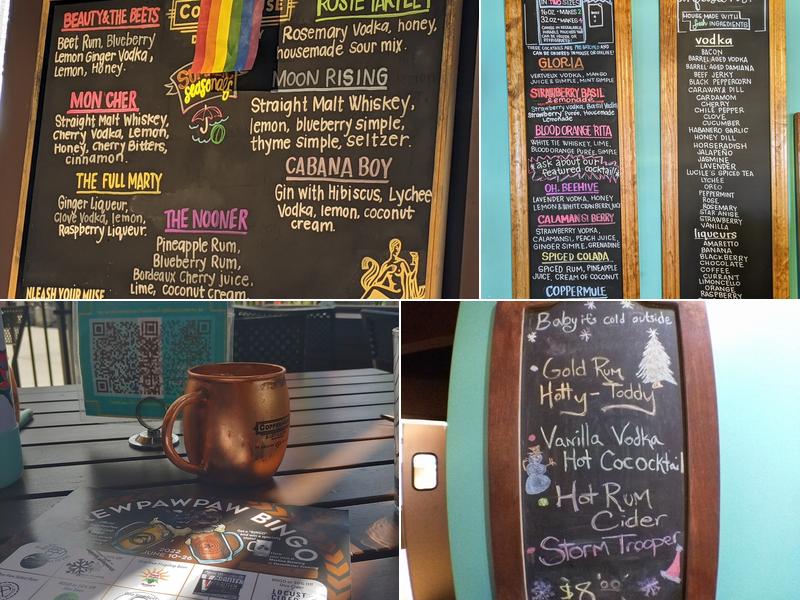 BEAUTY & THE BEETS
Beet Rum, Blueberry
Lemon Ginger Vodka,
Lemon, Honey.
MON CHER
Straight Malt Whiskey,
Cherry Vodka, Lemon,
Honey, Cherry Bitters,
cinnamon.
THE FULL MARTY
Ginger Liqueur,
Clove Vodka, lemon,
Raspberry Liqueur.
THE NOONER
Pineapple Rum,
Blueberry Rum,
Bordeaux Cherry juice,
Lime, coconut cream.
seasonal
Rosemary Vodka, honey,
housemade sour mix.
MOON RISING
Straight Malt Whiskey,
lemon, blueberry simple,
thyme simple, seltzer.
CABANA BOY
Gin with Hibiscus, Lychee
Vodka, lemon, coconut
cream.
NLEASH YOUR MUSE
IN TWO SIZES
16OZ - MAKES 2
32OZ - MAKES 4
THESE COCKTAILS ARE PRE BATCHED AND
CAN BE ORDERED IN HOUSE OR ONLINE!
GLORIA
VERTUEUX VODKA, MANGO
JUICE & SIMPLE, MINT SIMPLE
STRAWBERRY BASIL
lemonade
Strawberry Vodka, Basil Vodka
Strawberry Puree, Housemade
Lemonade
BLOOD ORANGE RITA
WHITE TIE WHISKEY, LIME,
BLOOD ORANGE PUREE, SIMPLE
ask about our
featured cocktail!
OH, BEEHIVE
LAVENDER VODKA, HONEY
LEMON & WHITE CRANBERRY JUICE
CALAMANSI BERRY
STRAWBERRY VODKA,
CALAMANSI, PEACH JUICE,
GINGER SIMPLE, GRENADINE
SPICED COLADA
SPICED RUM, PINEAPPLE
JUICE, CREAM OF COCONUT
COPPERMULE
HOUSE MADE WITH
fresh INGREDIENTS
vodka
BACON
BARREL-AGED VODKA
BARREL-AGED DAMIANA
BEEF JERKY
BLACK PEPPERCORN
CARAWAY & DILL
CARDAMOM
CHERRY
CHILE PEPPER
CLOVE
CUCUMBER
HABANERO GARLIC
HONEY DILL
HORSERADISH
JALAPEÑO
JASMINE
LAVENDER
LUCILLE'S SPICED TEA
LYCHEE
OREO
PEPPERMINT
ROSE
ROSEMARY
STAR ANISE
STRAWBERRY
VANILLA
liqueurs
AMARETTO
BANANA
BLACKBERRY
CHOCOLATE
COFFEE
CURRANT
LIMONCELLO
ORANGE
RASPBERRY
EWPAWPAW BINGO
2022
JUNE 10-26
LOCUST
CIDER
Baby it's cold outside
Gold Rum
Hotty-Toddy
Vanilla Vodka
Hot Cococktail
Hot Rum
Cider
Storm Trooper
$8.00